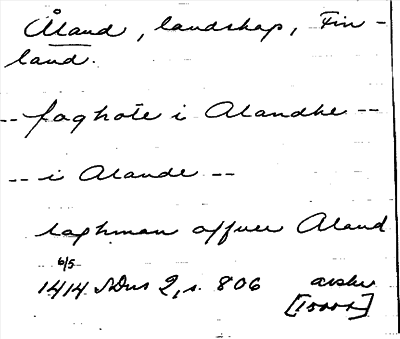 Åland, landskap, Fin-
land.
-- foghote i Alandhe --
-- i Alande --
laghman offuer Aland
6/5
1414 SDns 2, s. 806 avskr